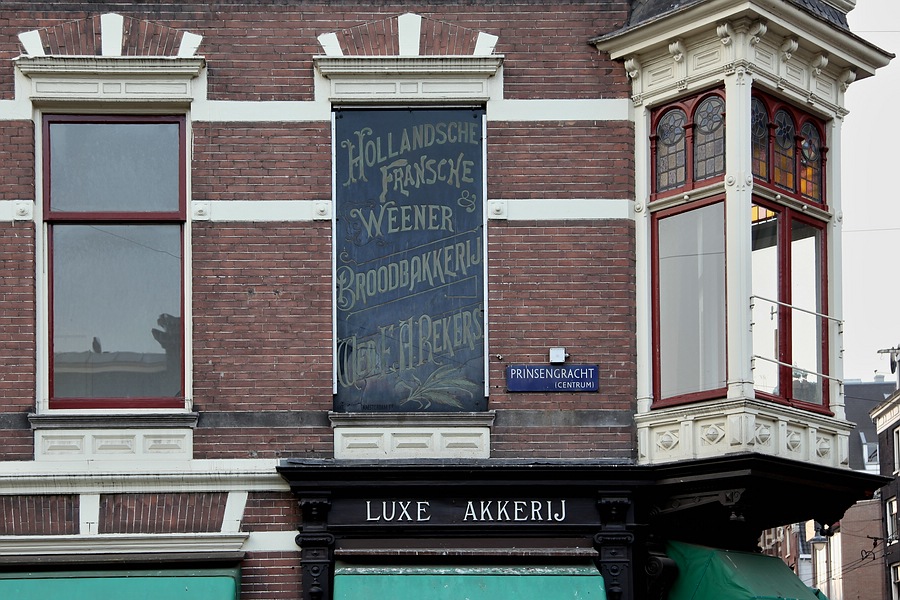 HOLLANDSCHE
FRANSCHE
&
WEENER
BROODBAKKERIJ
WED. E. A. REKERS
PRINSENGRACHT
(CENTRUM)
LUXE AKKERIJ